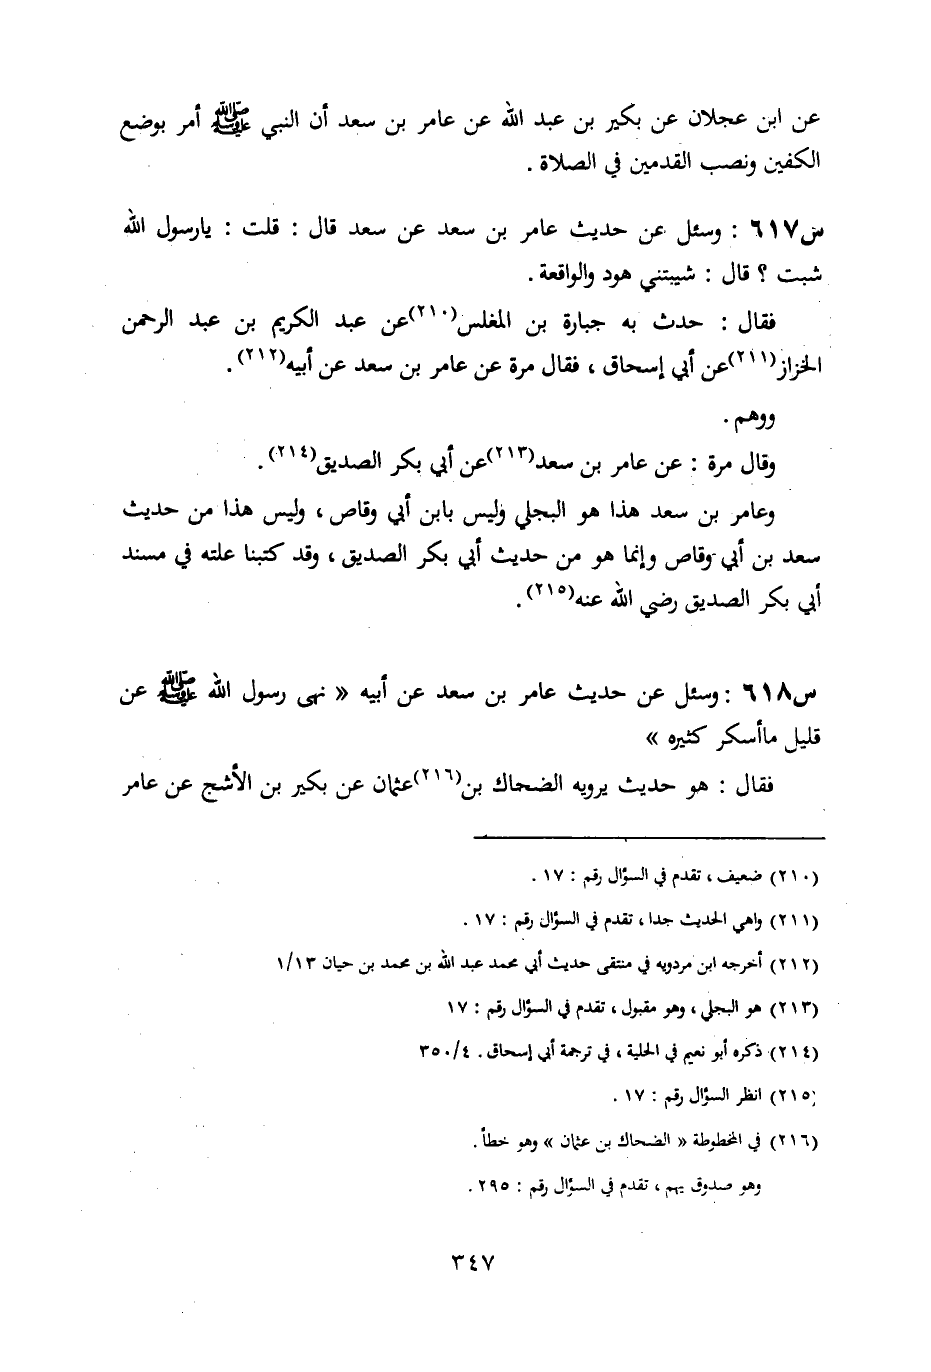 عن ابن عجلان عن بكير بن عبد الله عن عامر بن سعد أن النبي ﷺ أمر بوضع
الكفين ونصب القدمين في الصلاة .
س٦١٧ : وسئل عن حديث عامر بن سعد عن سعد قال : قلت : يارسول الله
شبت ؟ قال : شيبتني هود والواقعة .
فقال : حدث به جبارة بن المغلس(٢١٠)عن عبد الكريم بن عبد الرحمن
الخزاز(٢١١)عن أبي إسحاق ، فقال مرة عن عامر بن سعد عن أبيه(٢١٢).
ووهم .
وقال مرة : عن عامر بن سعد(٢١٣)عن أبي بكر الصديق(٢١٤).
وعامر بن سعد هذا هو البجلي وليس بابن أبي وقاص ، وليس هذا من حديث
سعد بن أبي وقاص وإنما هو من حديث أبي بكر الصديق ، وقد كتبنا علته في مسند
أبي بكر الصديق رضي الله عنه(٢١٥).
س٦١٨ : وسئل عن حديث عامر بن سعد عن أبيه « نهى رسول الله ﷺ عن
قليل ماأسكر كثيره »
فقال : هو حديث يرويه الضحاك بن(٢١٦)عثمان عن بكير بن الأشج عن عامر
(٢١٠) ضعيف ، تقدم في السؤال رقم : ١٧ .
(٢١١) واهي الحديث جدا ، تقدم في السؤال رقم : ١٧ .
(٢١٢) أخرجه ابن مردويه في منتقى حديث أبي محمد عبد الله بن محمد بن حيان ١/١٣
(٢١٣) هو البجلي ، وهو مقبول ، تقدم في السؤال رقم : ١٧
(٢١٤) ذكره أبو نعيم في الحلية ، في ترجمة أبي إسحاق . ٣٥٠/٤
(٢١٥) انظر السؤال رقم : ١٧ .
(٢١٦) في المخطوطة « الضحاك بن عثمان » وهو خطأ .
وهو صدوق يهم ، تقدم في السؤال رقم : ٢٩٥ .
٣٤٧